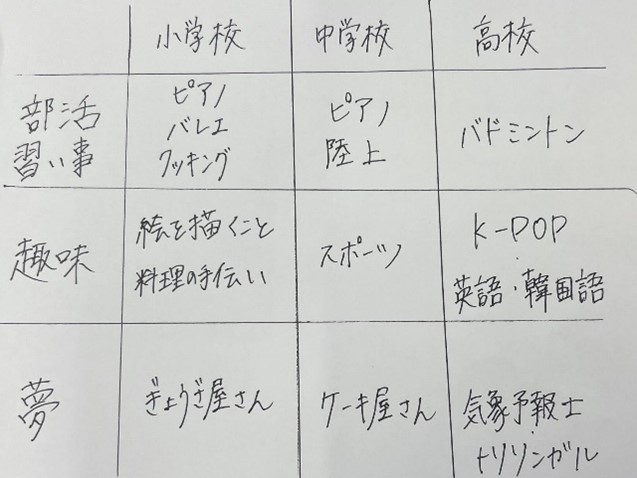 小学校 中学校 高校
部活
習い事
ピアノ
バレエ
クッキング
ピアノ
陸上
バドミントン
趣味
絵を描くこと
料理の手伝い
スポーツ
K-POP
英語・韓国語
夢
ぎょうざ屋さん
ケーキ屋さん
気象予報士
トリリンガル